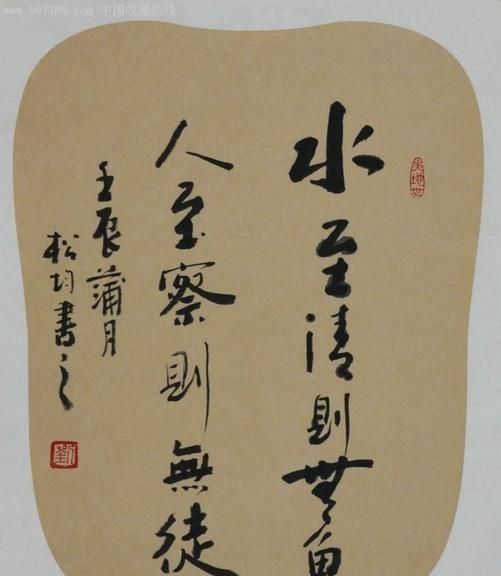 www.997788.com 中国收藏热线
水至清则無魚
人至察則無徒
壬辰蒲月
松均書之
劉